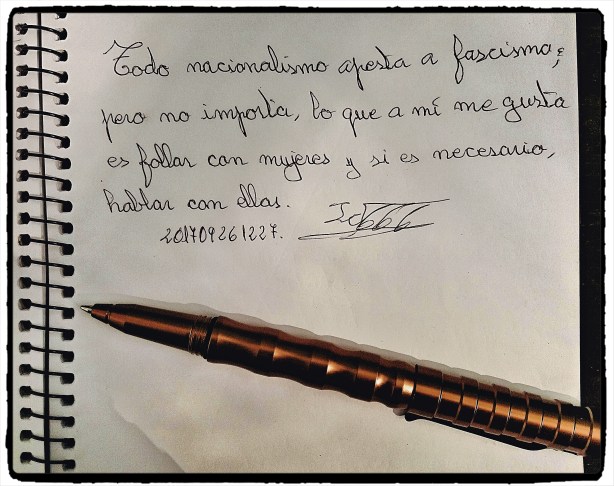 Todo nacionalismo apesta a fascismo;
pero no importa, lo que a mí me gusta
es follar con mujeres y si es necesario,
hablar con ellas.
201709261227.